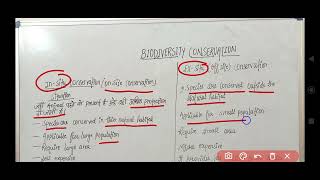 BIODIVERSITY CONSERVATION
In-Situ conservation (on site conservation)
Species are conserved in their natural habitat
Applicable for large population
Require large area
Less expensive
Ex-Situ (off site) conservation
Species are conserved outside the
natural habitat
Applicable for small population
Require small area
More expensive
It provides